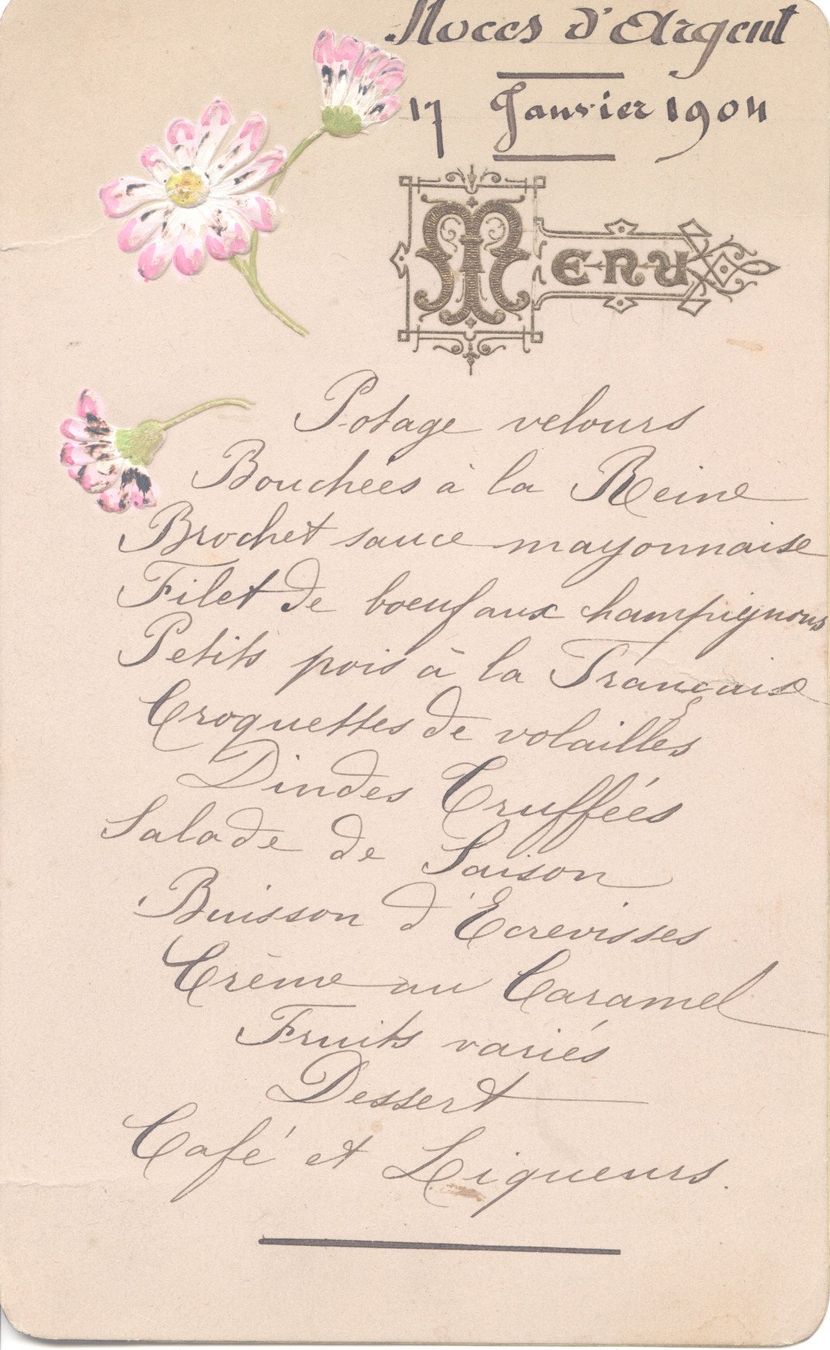 Noces d'Argent
17 Janvier 1904
Menu
Potage velours
Bouchées à la Reine
Brochet sauce mayonnaise
Filet de boeuf aux champignons
Petits pois à la Française
Croquettes de volailles
Dindes Truffées
Salade de Saison
Buisson d'Ecrevisses
Crème au Caramel
Fruits variés
Dessert
Café et Liqueurs.